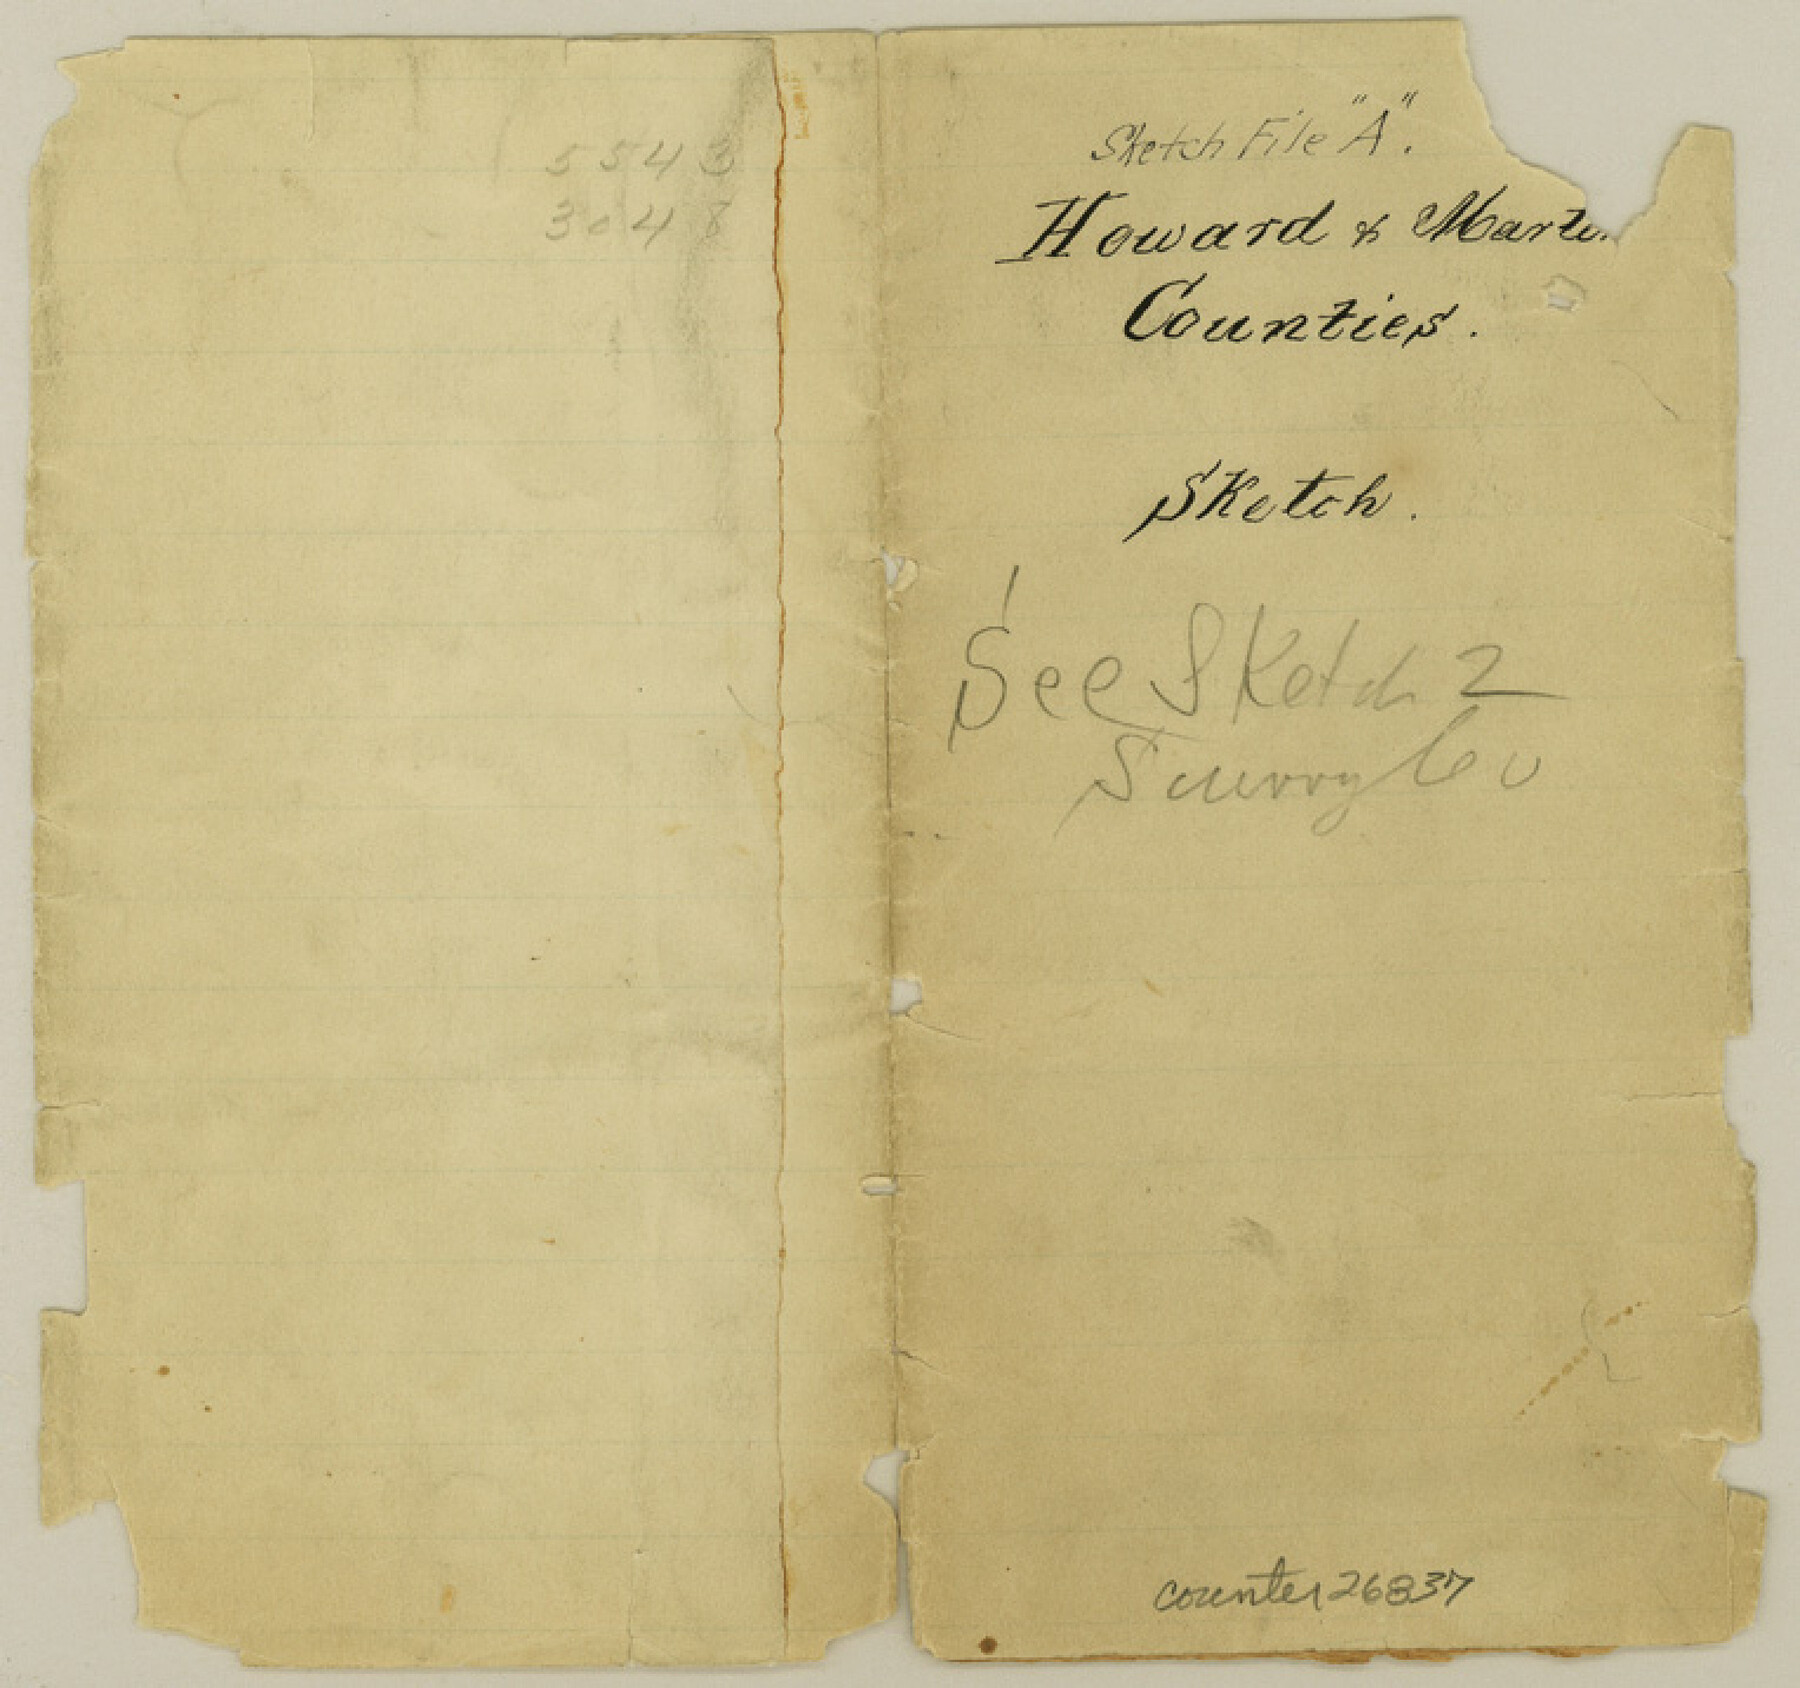 5543
3048
Sketch File "A".
Howard & Martin
Counties.
Sketch.
See Sketch 2
Scurry Co
counter 26837